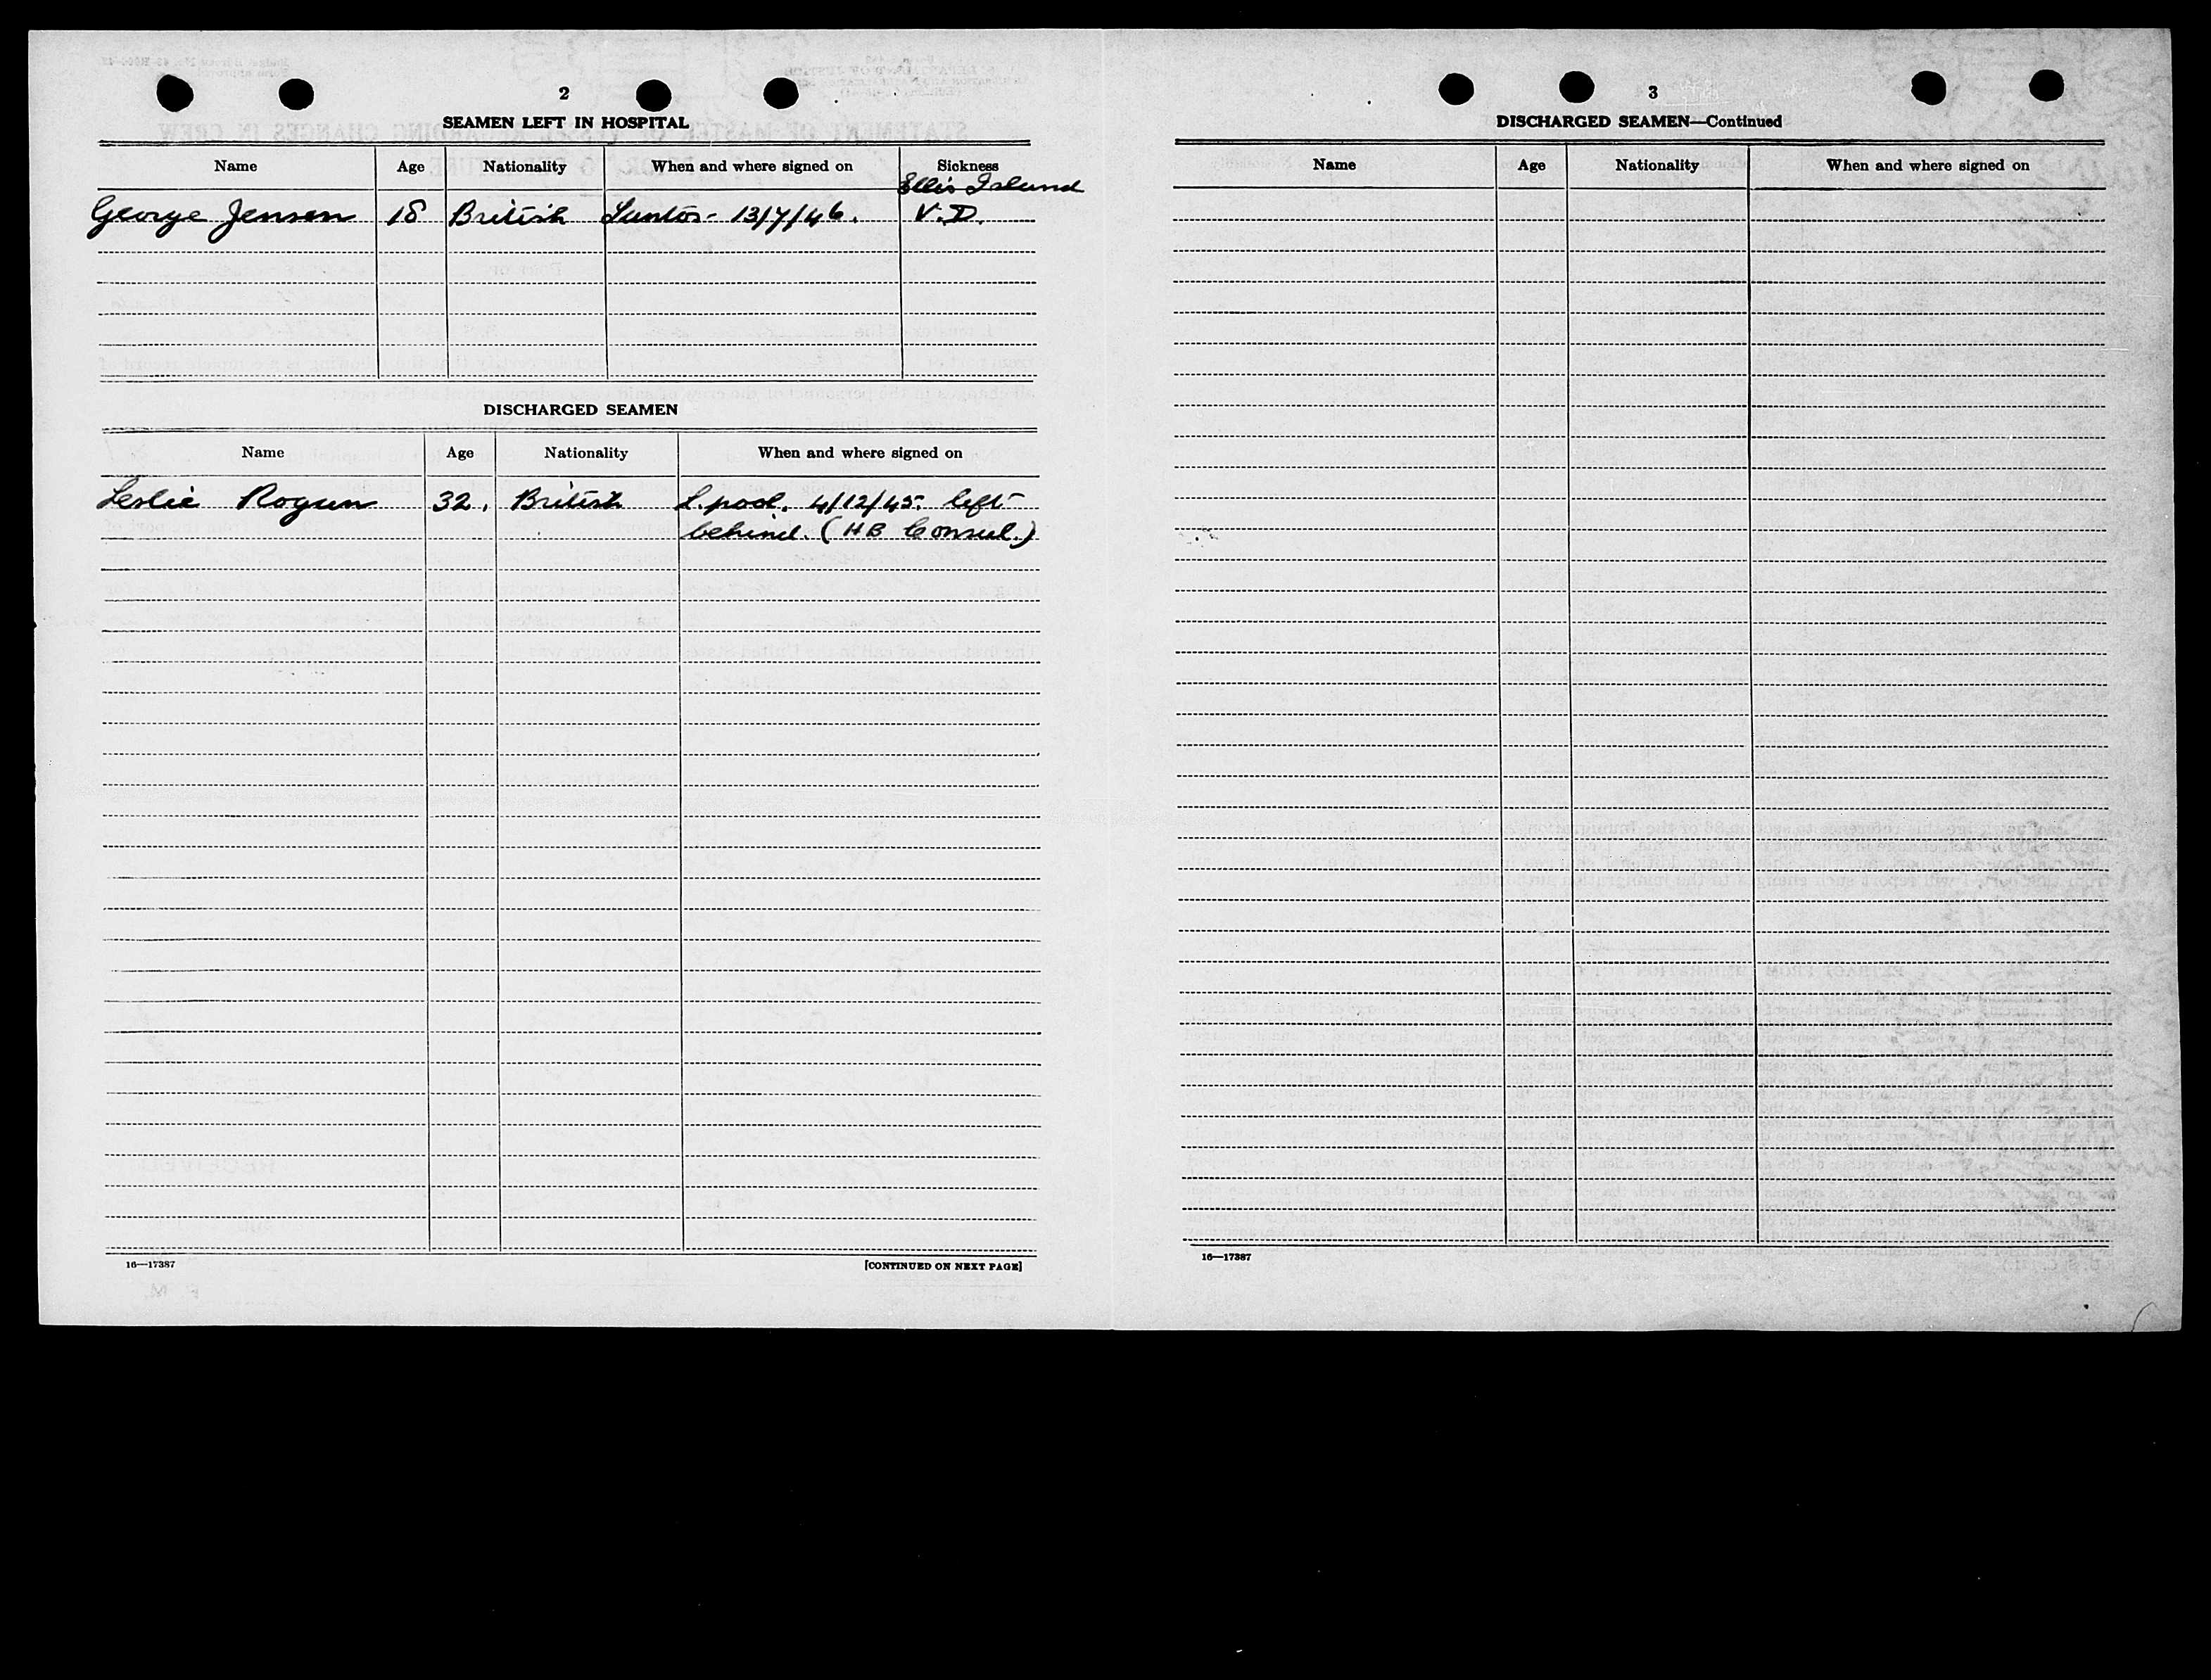 2
SEAMEN LEFT IN HOSPITAL
Name Age Nationality When and where signed on Sickness
Ellis Island
George Jensen 18 British Santos - 13/7/46. V.D.
DISCHARGED SEAMEN
Name Age Nationality When and where signed on
Leslie 32. British L.pool. 4/12/45. left
behind. (HB Consul.)
16—17387 [CONTINUED ON NEXT PAGE]
3
DISCHARGED SEAMEN—Continued
Name Age Nationality When and where signed on
16—17387